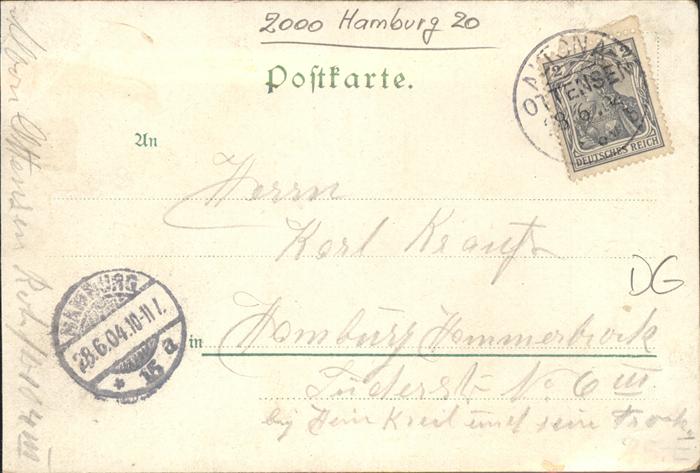 2000 Hamburg 20
Postkarte.
ALTONA
OTTENSEN
28.6.04
2 2
DEUTSCHES REICH
An
Herrn
Karl Krauß
DG
HAMBURG
28.6.04.10-11V.
* 15 a
in Hamburg Hammerbrook
Süderstr No 6 III
bei Hein Kreil und sein
Ottensen